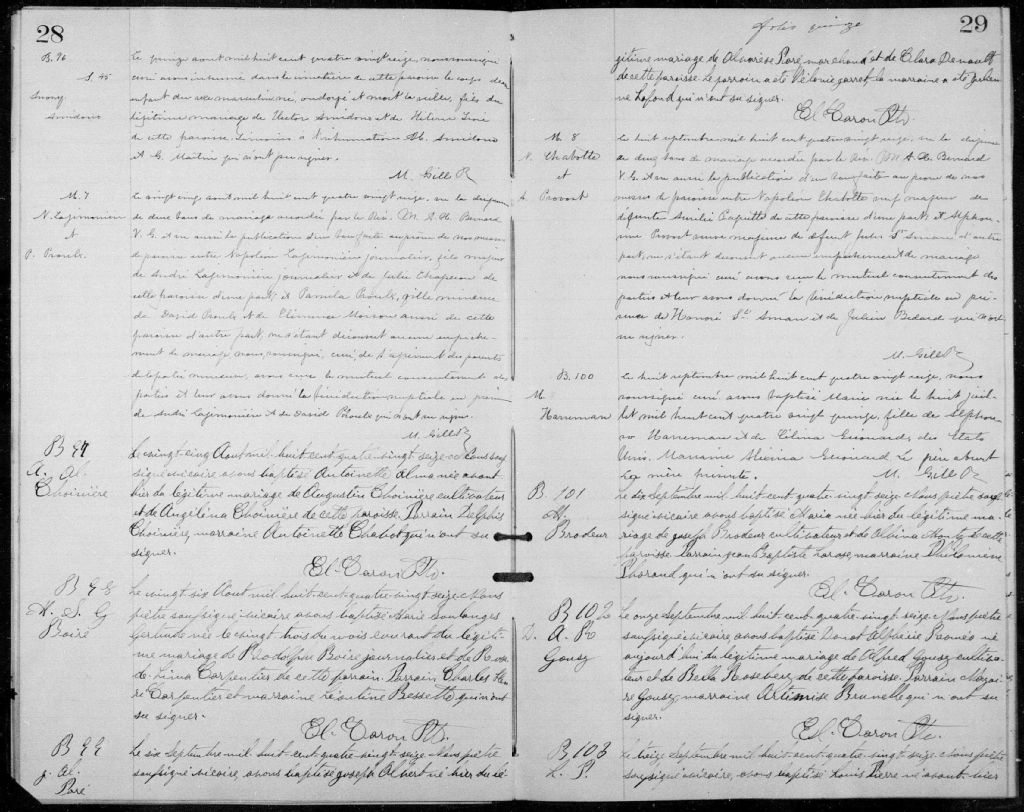 28
B. 96
S. 45
le quinze aout mil huit cent quatre vingt seize, nous soussigné
curé avons inhumé dans le cimetière de cette paroisse le corps d'un
enfant du sexe masculin, ondoyé et mort la veille, fils du
légitime mariage de Victor et de Helene
de cette paroisse. à l'inhumation
et G. Martin qui n'ont pu signer.
M. Gill Ptr
M. 7
N. Lajimonière
et
P. Proulx
Le vingt cinq aout mil huit cent quatre vingt seize, vu la dispense
de deux bans de mariage accordée par le Rev. M. A. X. Bernard
V. G. et vu aussi la publication d'un ban faite au prône de nos messes
de paroisse entre Napoleon Lajimonière journalier, fils majeur
de André Lajimonière journalier et de Julie de
cette paroisse d'une part, et Pamila Proulx, fille mineure
de David Proulx et de Clémence aussi de cette
paroisse d'autre part, ne s'étant découvert aucun empêche-
ment de mariage nous, soussigné, curé, de l'agrément des parents
de la partie mineure, avons reçu le mutuel consentement des
parties et leur avons donné la bénédiction nuptiale en présence
de André Lajimonière et de David Proulx qui n'ont su signer.
M. Gill Ptr
B 97
A. Al.
Choinière
Le vingt-cinq Aout mil-huit-cent-quatre-vingt seize Nous sous-
signé vicaire avons baptisé Antoinette Alma née avant
hier du légitime mariage de Augustin Choinière cultivateur
et de Angelina Choinière de cette paroisse. Parrain Delphis
Choinière, marraine Antoinette Chabot qui n'ont su
signer.
El. Caron Ptr.
B 98
M. S. G
Boiré
Le vingt six Aout mil-huit-cent-quatre-vingt-seize Nous
prêtre soussigné vicaire avons baptisé Marie Soulanges
Gertrude née le vingt trois du mois courant du légiti-
me mariage de Rodolphe Boiré journalier et de Rose
de Lima Carpentier de cette paroisse. Parrain Charles
Carpentier et marraine Léontine Bessette qui n'ont
su signer.
El. Caron Ptr.
B 99
J. Al.
Paré
Le six Septembre mil huit-cent-quatre-vingt-seize Nous prêtre
soussigné vicaire, avons baptisé Joseph Albert né hier du lé-
folio quinze
29
gitime mariage de Paré, marchand et de Clara Denault
de cette paroisse. Le parrain a été la marraine a été Julien-
ne Lafond qui n'ont su signer.
El Caron Ptr.
M. 8
N. Chabotte
et
A. Provost
Le huit septembre mil huit cent quatre vingt seize, vu la dispense
de deux bans de mariage accordée par le Rev. M. A. X. Bernard
V. G. et vu aussi la publication d'un ban faite au prone de nos
messes de paroisse entre Napoléon Chabotte veuf majeur de
défunte Aurélie Paquette de cette paroisse d'une part, et Alphon-
sine Provost veuve majeure de défunt Jules St Amant d'autre
part, ne s'étant découvert aucun empêchement de mariage
nous soussigné curé avons reçu le mutuel consentement des
parties et leur avons donné la bénédiction nuptiale en pré-
sence de Honoré St Amant et de Julien Bedard qui n'ont
su signer.
M. Gill Ptr
B. 100
M.
Harriman
Le huit septembre mil huit cent quatre vingt seize, nous
soussigné curé avons baptisé Marie née le huit juil-
let mil huit cent quatre vingt quinze, fille de Alphon-
se Harriman et de Célina des Etats
Unis. Marraine Le père absent
La mère présente. M. Gill Ptr
B. 101
M.
Brodeur
Le dix Septembre mil huit-cent-quatre-vingt seize Nous prêtre sous-
signé vicaire avons baptisé Maria née hier du légitime ma-
riage de Joseph Brodeur cultivateur et de Albina de cette
paroisse. Parrain Jean Baptiste Larose, marraine Philomène
qui n'ont su signer.
El. Caron Ptr.
B 102
D. A. Ro
Goury
Le onze Septembre mil huit-cent-quatre-vingt seize Nous prêtre
soussigné vicaire, avons baptisé Donat Alphérie Roméo né
aujourd'hui du légitime mariage de Alfred cultiva-
teur et de Bella de cette paroisse. Parrain
marraine Artémise Brunelle qui n'ont su
signer.
El. Caron Ptr.
B. 103
L. P.
Le treize Septembre mil huit-cent-quatre-vingt seize Nous prêtre
soussigné vicaire, avons baptisé Louis Pierre né avant-hier